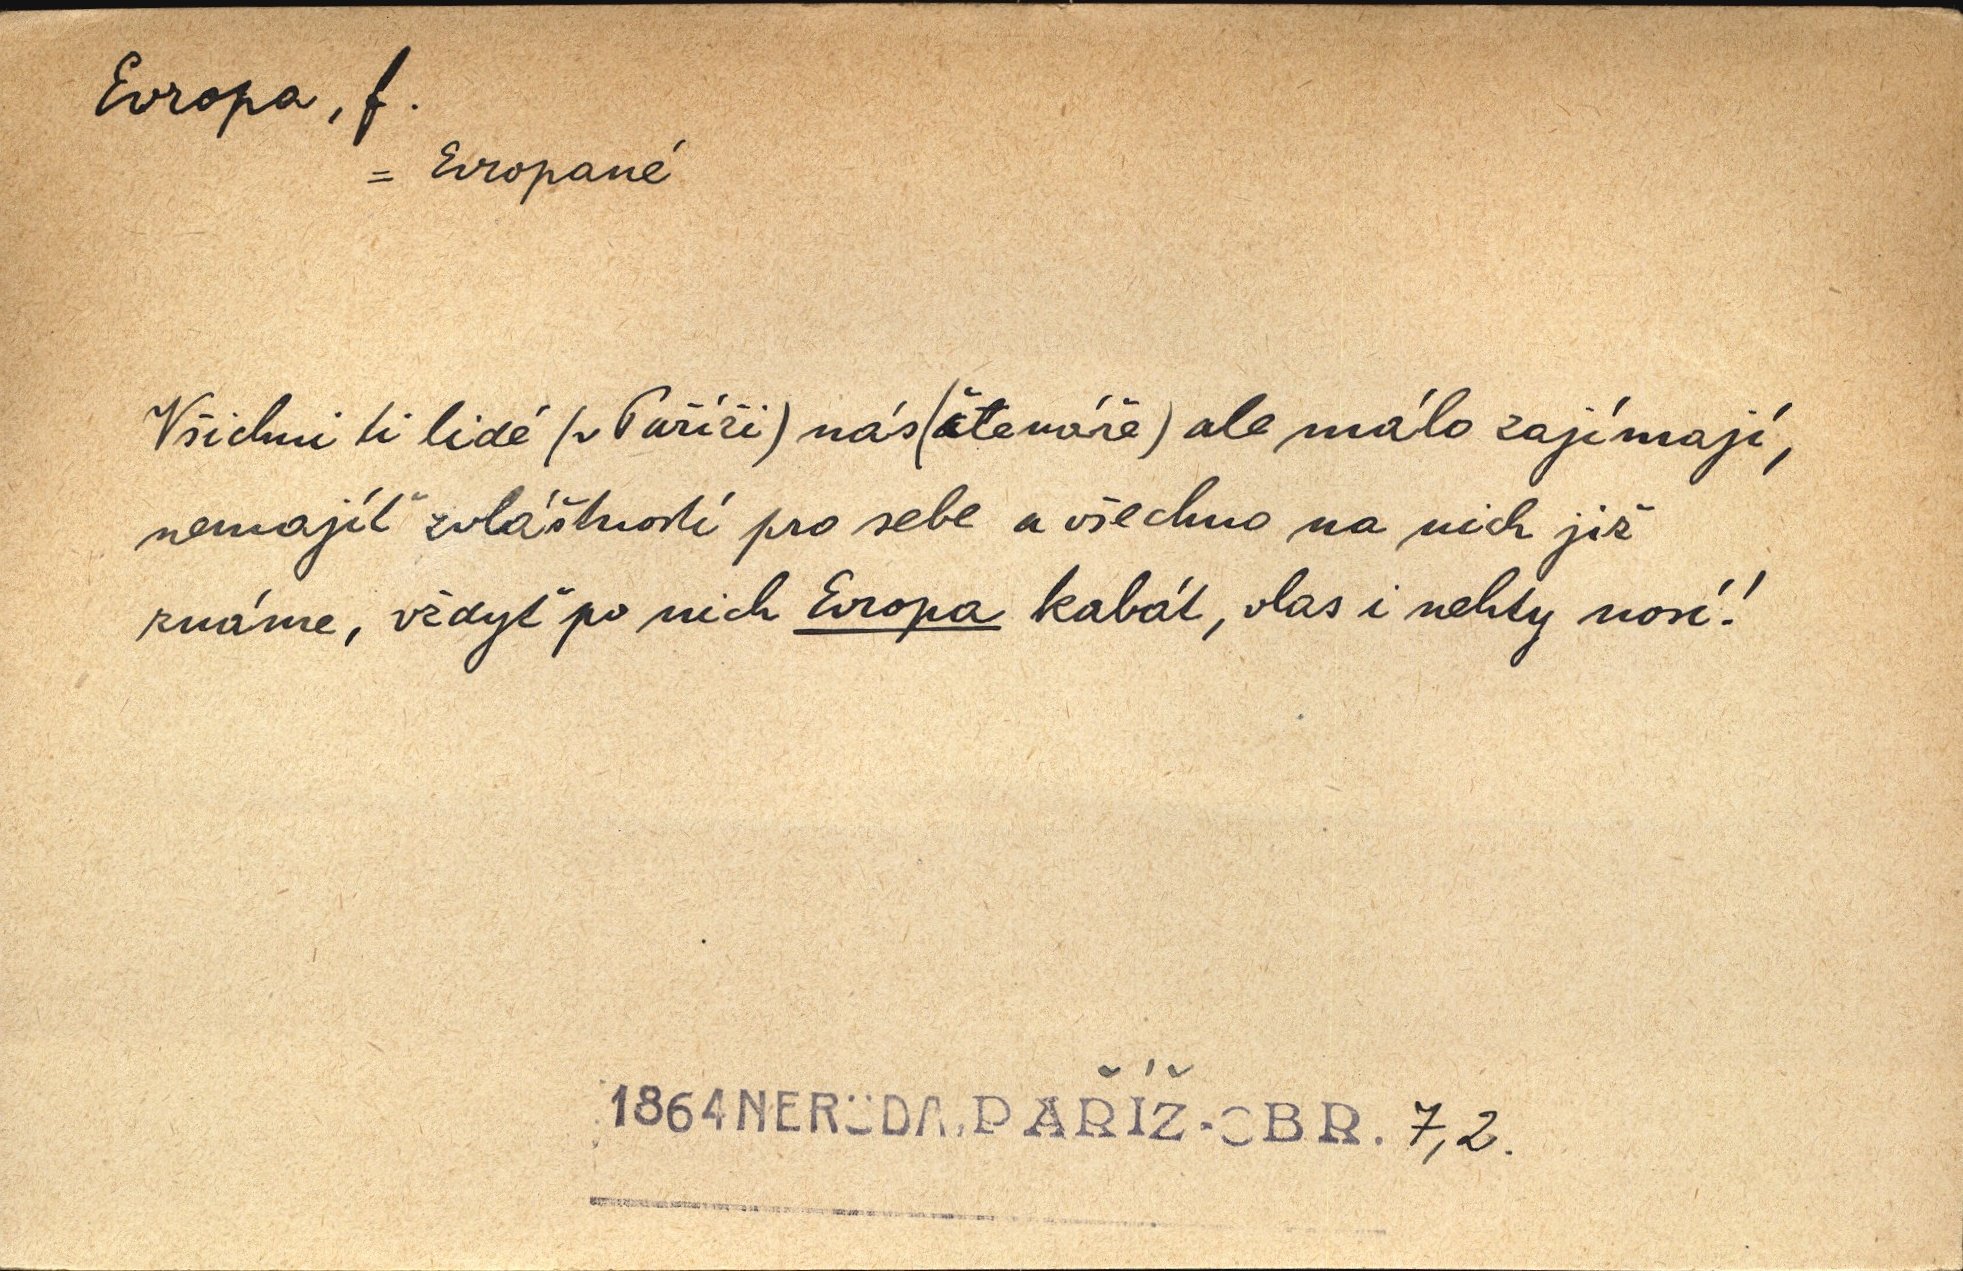 Evropa, f.
= Evropané
Všichni ti lidé (v Paříži) nás (čtenáře) ale málo zajímají,
nemajíť zvláštností pro sebe a všechno na nich již
známe, vždyť po nich Evropa kabát, vlas i nehty nosí!
1864 NERUDA, PAŘÍŽ. OBR. 7,2.